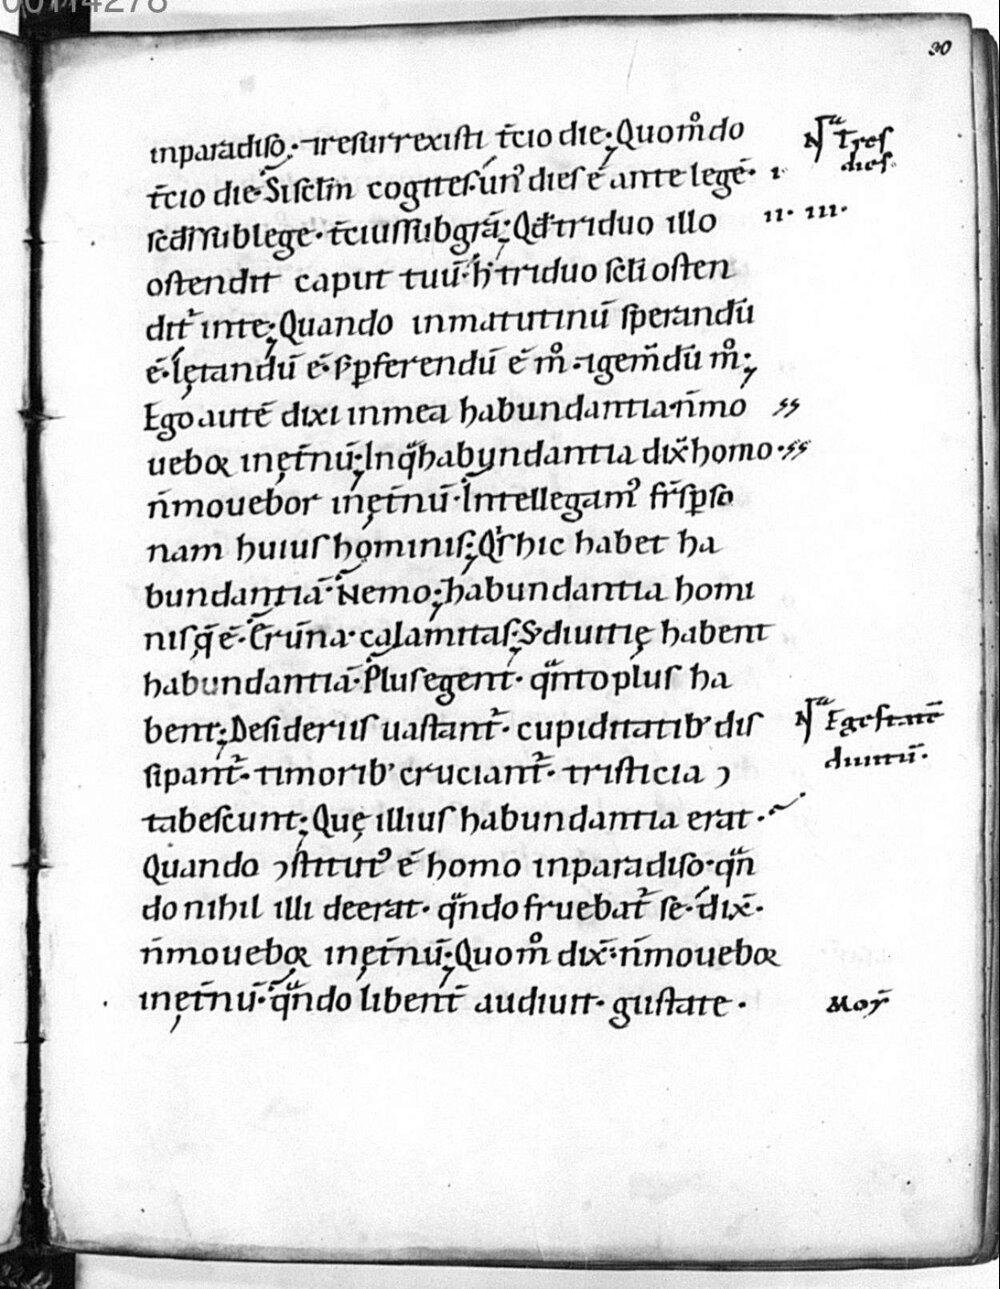 00114278
30
inparadiſo. ⁊reſurrexiſti t̄cio die; Quom̊do
t̄cio die. Si ſcl̄m cogiteſ. un᾽ dieſ ē ante legē. ı
ſcd̄ſ ſub lege. t̄ciuſ ſub gr̄a; Qđ triduo illo
oſtendit caput tuū. h̓ triduo ſcl̄i oſten
dit᷑ inte; Quando inmatutinū ſperandū
ē. lętandū ē. ſꝫ p̱ferendū ē m̊. ⁊gem̄dū m̊;
Ego autē dixi inmea habundantia. n̄mo
ueboꝛ inęt̄nū; Inqͣ habundantia dix̄ homo.
n̄mouebor inęt̄nū. Intellegam᾽ fr̄ſ p̱ſo
nam huiuſ hominiſ; Qͥſ hic habet ha
bundantiā. Nemo; habundantia homi
niſ q̄ ē. Erūna. calamitaſ; S; diuitię habent
habundantiā. Pluſ egent. qͣnto pluſ ha
bent; Deſideriiſ uaſtant᷑. cupiditatib᾽ diſ
ſipant᷑. timorib᾽ cruciant᷑. triſticia ꝯ
tabeſcunt; Quę illiuſ habundantia erat.
Quando ꝯſtitut᾽ ē homo inparadiſo. qͣn
do nihil illi deerat. qͣndo fruebat᷑ ſe. dix̄.
n̄moueboꝛ inęt̄nū; Quom̊ dix̄. n̄moueboꝛ
inęt̄nū. qͣndo libent̄ audiuit. guſtate.
Nͣ Treſ
dieſ.
ıı. ııı.
Nͣ Egeſtatē
diuitū.